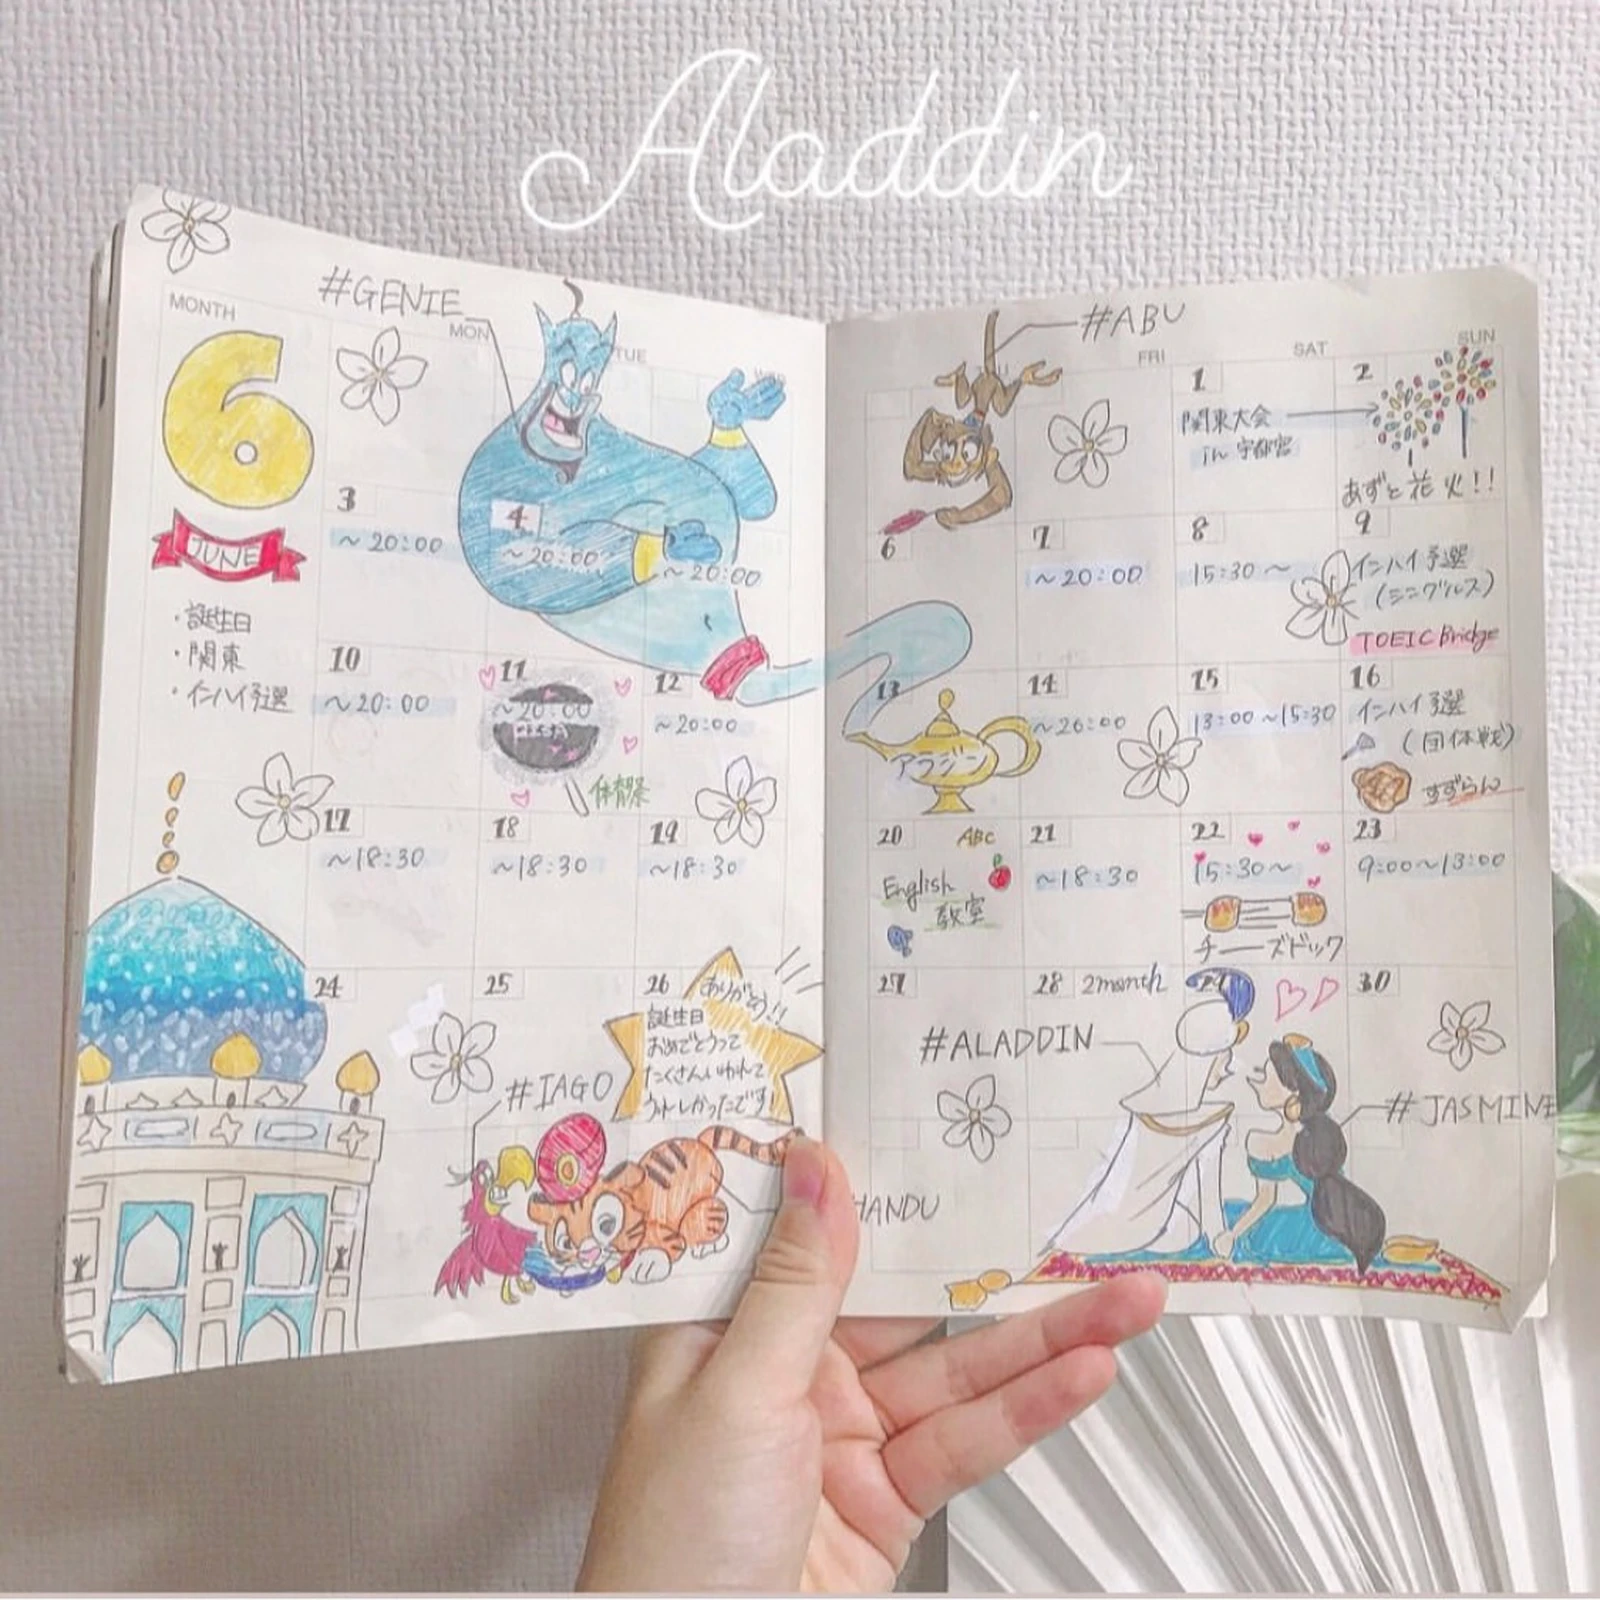 Aladdin
#GENIE
MONTH
MON
TUE
6
JUNE
・誕生日
・関東
・インハイ予選
3
～20:00
4
～20:00
～20:00
10
～20:00
11
～20:00
体育祭
12
～20:00
17
～18:30
18
～18:30
19
～18:30
24
25
26
ありがとう!!
誕生日
おめでとうって
たくさんいわれて
ウレしかったです!
#IAGO
#ABU
FRI
SAT
SUN
1
関東大会
in 宇都宮
2
あずと花火!!
6
7
～20:00
8
15:30～
9
インハイ予選
(シングルス)
TOEIC Bridge
13
アラジン
14
～20:00
15
13:00～15:30
16
インハイ予選
(団体戦)
すずらん
20
ABC
English
教室
21
～18:30
22
15:30～
チーズドック
23
9:00～13:00
27
28 2month
29
30
#ALADDIN
#JASMINE
HANDU